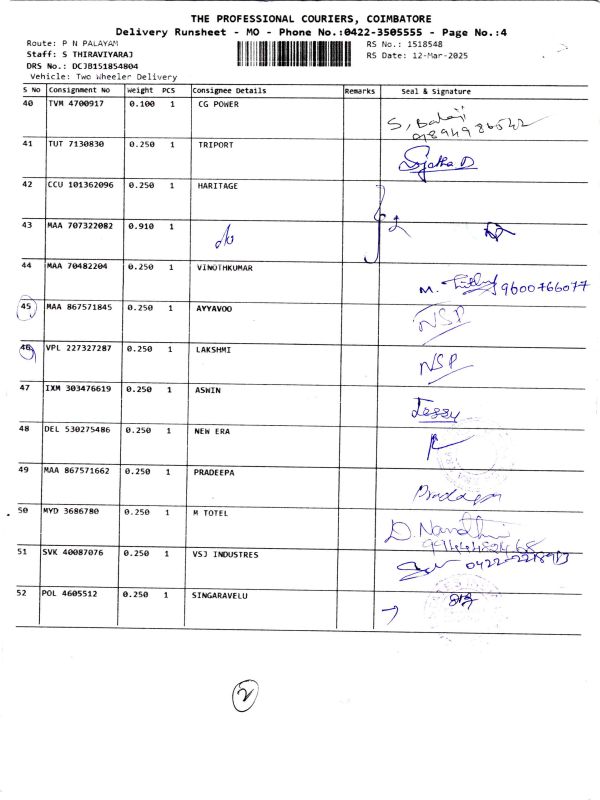 THE PROFESSIONAL COURIERS, COIMBATORE
Delivery Runsheet - MO - Phone No.:0422-3505555 - Page No.:4
Route: P N PALAYAM
RS No.: 1518548
Staff: S THIRAVIYARAJ
RS Date: 12-Mar-2025
DRS No.: DCJB151854804
Vehicle: Two Wheeler Delivery
S No Consignment No Weight PCS Consignee Details Remarks Seal & Signature
40 TVM 4700917 0.100 1 CG POWER
S, Balaji
41 TUT 7130830 0.250 1 TRIPORT
Sujatha D
42 CCU 101362096 0.250 1 HARITAGE
43 MAA 707322082 0.910 1
do
44 MAA 70482204 0.250 1 VINOTHKUMAR
M. 9600766077
45 MAA 867571845 0.250 1 AYYAVOO
NSP
46 VPL 227327287 0.250 1 LAKSHMI
NSP
47 IXM 303476619 0.250 1 ASWIN
Jessy
48 DEL 530275486 0.250 1 NEW ERA
49 MAA 867571662 0.250 1 PRADEEPA
Pradeepa
50 MYD 3686780 0.250 1 M TOTEL
D. Nandhini
51 SVK 40087076 0.250 1 VSJ INDUSTRES
52 POL 4605512 0.250 1 SINGARAVELU
2